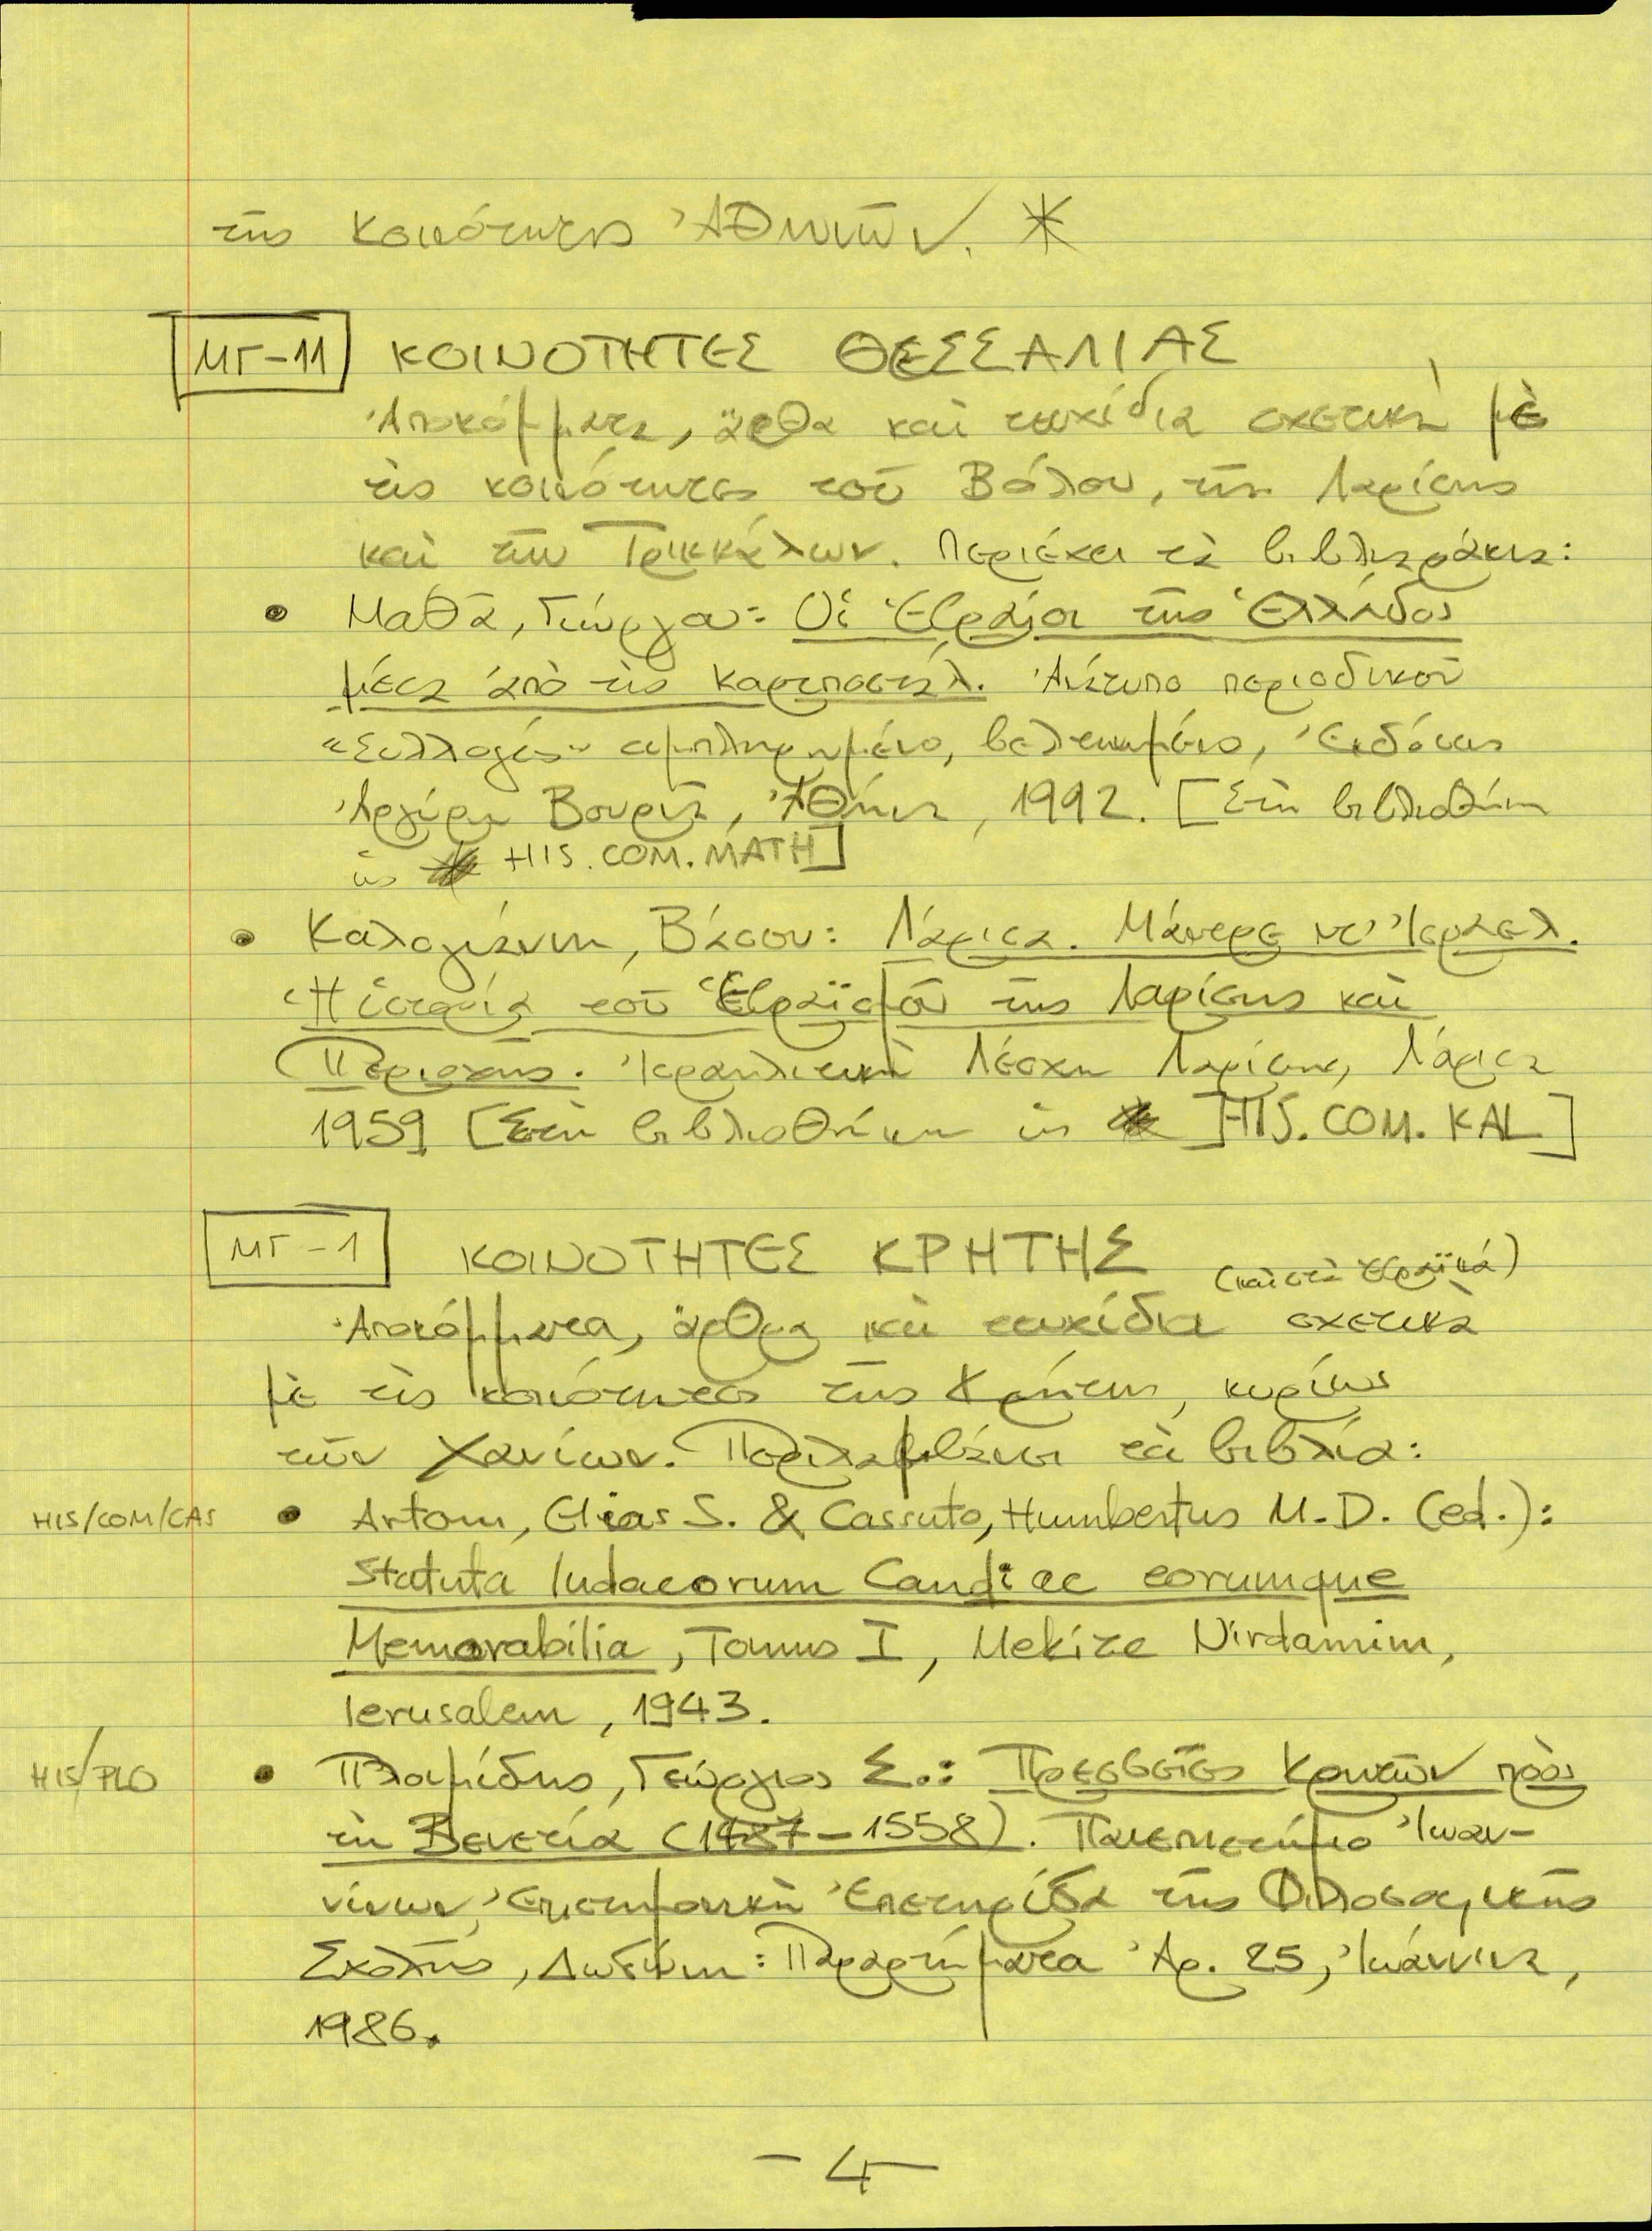 τῆς κοινότητας Ἀθηνῶν. *
ΜΓ-11 ΚΟΙΝΟΤΗΤΕΣ ΘΕΣΣΑΛΙΑΣ
Ἀποκόμματα, ἄρθα καὶ τευχίδια σχετικὰ μὲ
τὶς κοινότητες τοῦ Βόλου, τῆς Λαρίσης
καὶ τῶν Τρικκάλων. Περιέχει τὰ βιβλιαράκια:
• Μαθᾶ, Γιώργου: Οἱ Ἑβραῖοι τῆς Ἑλλάδος
μέσα ἀπὸ τὶς καρτποστάλ. Ἀνάτυπο περιοδικοῦ
"Συλλογές" συμπληρωμένο, βελτιωμένο, Ἐκδόσεις
Ἀργύρη Βουρνᾶ, Ἀθήνα, 1992. [Στὴ βιβλιοθήκη
ὡς HIS. COM. MATH]
• Καλογιάννη, Βάσου: Λάρισα. Μάνερε ντ' Ἰσραελ.
Ἡ ἱστορία τοῦ Ἑβραϊσμοῦ τῆς Λαρίσης καὶ
Περιοχῆς. Ἰσραηλιτικὴ Λέσχη Λαρίσης, Λάρισα
1959 [Στὴ βιβλιοθήκη ὡς HIS. COM. KAL]
ΜΓ-1 ΚΟΙΝΟΤΗΤΕΣ ΚΡΗΤΗΣ
(καὶ στὰ Ἑβραϊκά)
Ἀποκόμματα, ἄρθρα καὶ τευχίδια σχετικὰ
μὲ τὶς κοινότητες τῆς Κρήτης, κυρίως
τῶν Χανίων. Περιλαμβάνει τὰ βιβλία:
HIS/COM/CAS • Artom, Elias S. & Cassuto, Humbertus M.D. (ed.):
Statuta Iudaeorum Candiae eorumque
Memorabilia, Tomus I, Mekize Nirdamim,
Ierusalem, 1943.
HIS/PLO • Πλουμίδης, Γεώργιος Σ.: Πρεσβεῖες Κρητῶν πρὸς
τὴ Βενετία (1487-1558). Πανεπιστήμιο Ἰωαν-
νίνων, Ἐπιστημονικὴ Ἐπετηρίδα τῆς Φιλοσοφικῆς
Σχολῆς, Δωδώνη: Παραρτήματα Ἀρ. 25, Ἰωάννινα,
1986.
-4-